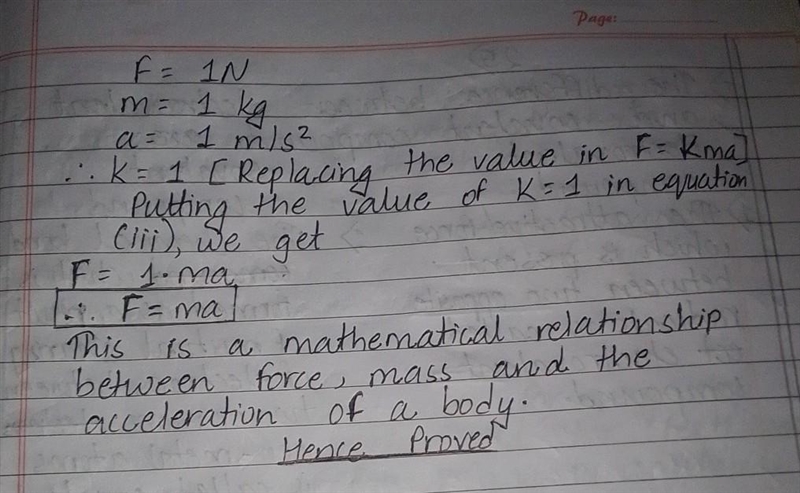 Page:
F = 1N
m = 1 kg
a = 1 m/s²
∴ K = 1 [Replacing the value in F = Kma]
Putting the value of K=1 in equation
(iii), we get
F = 1·ma
∴ F = ma
This is a mathematical relationship
between force, mass and the
acceleration of a body.
Hence Proved